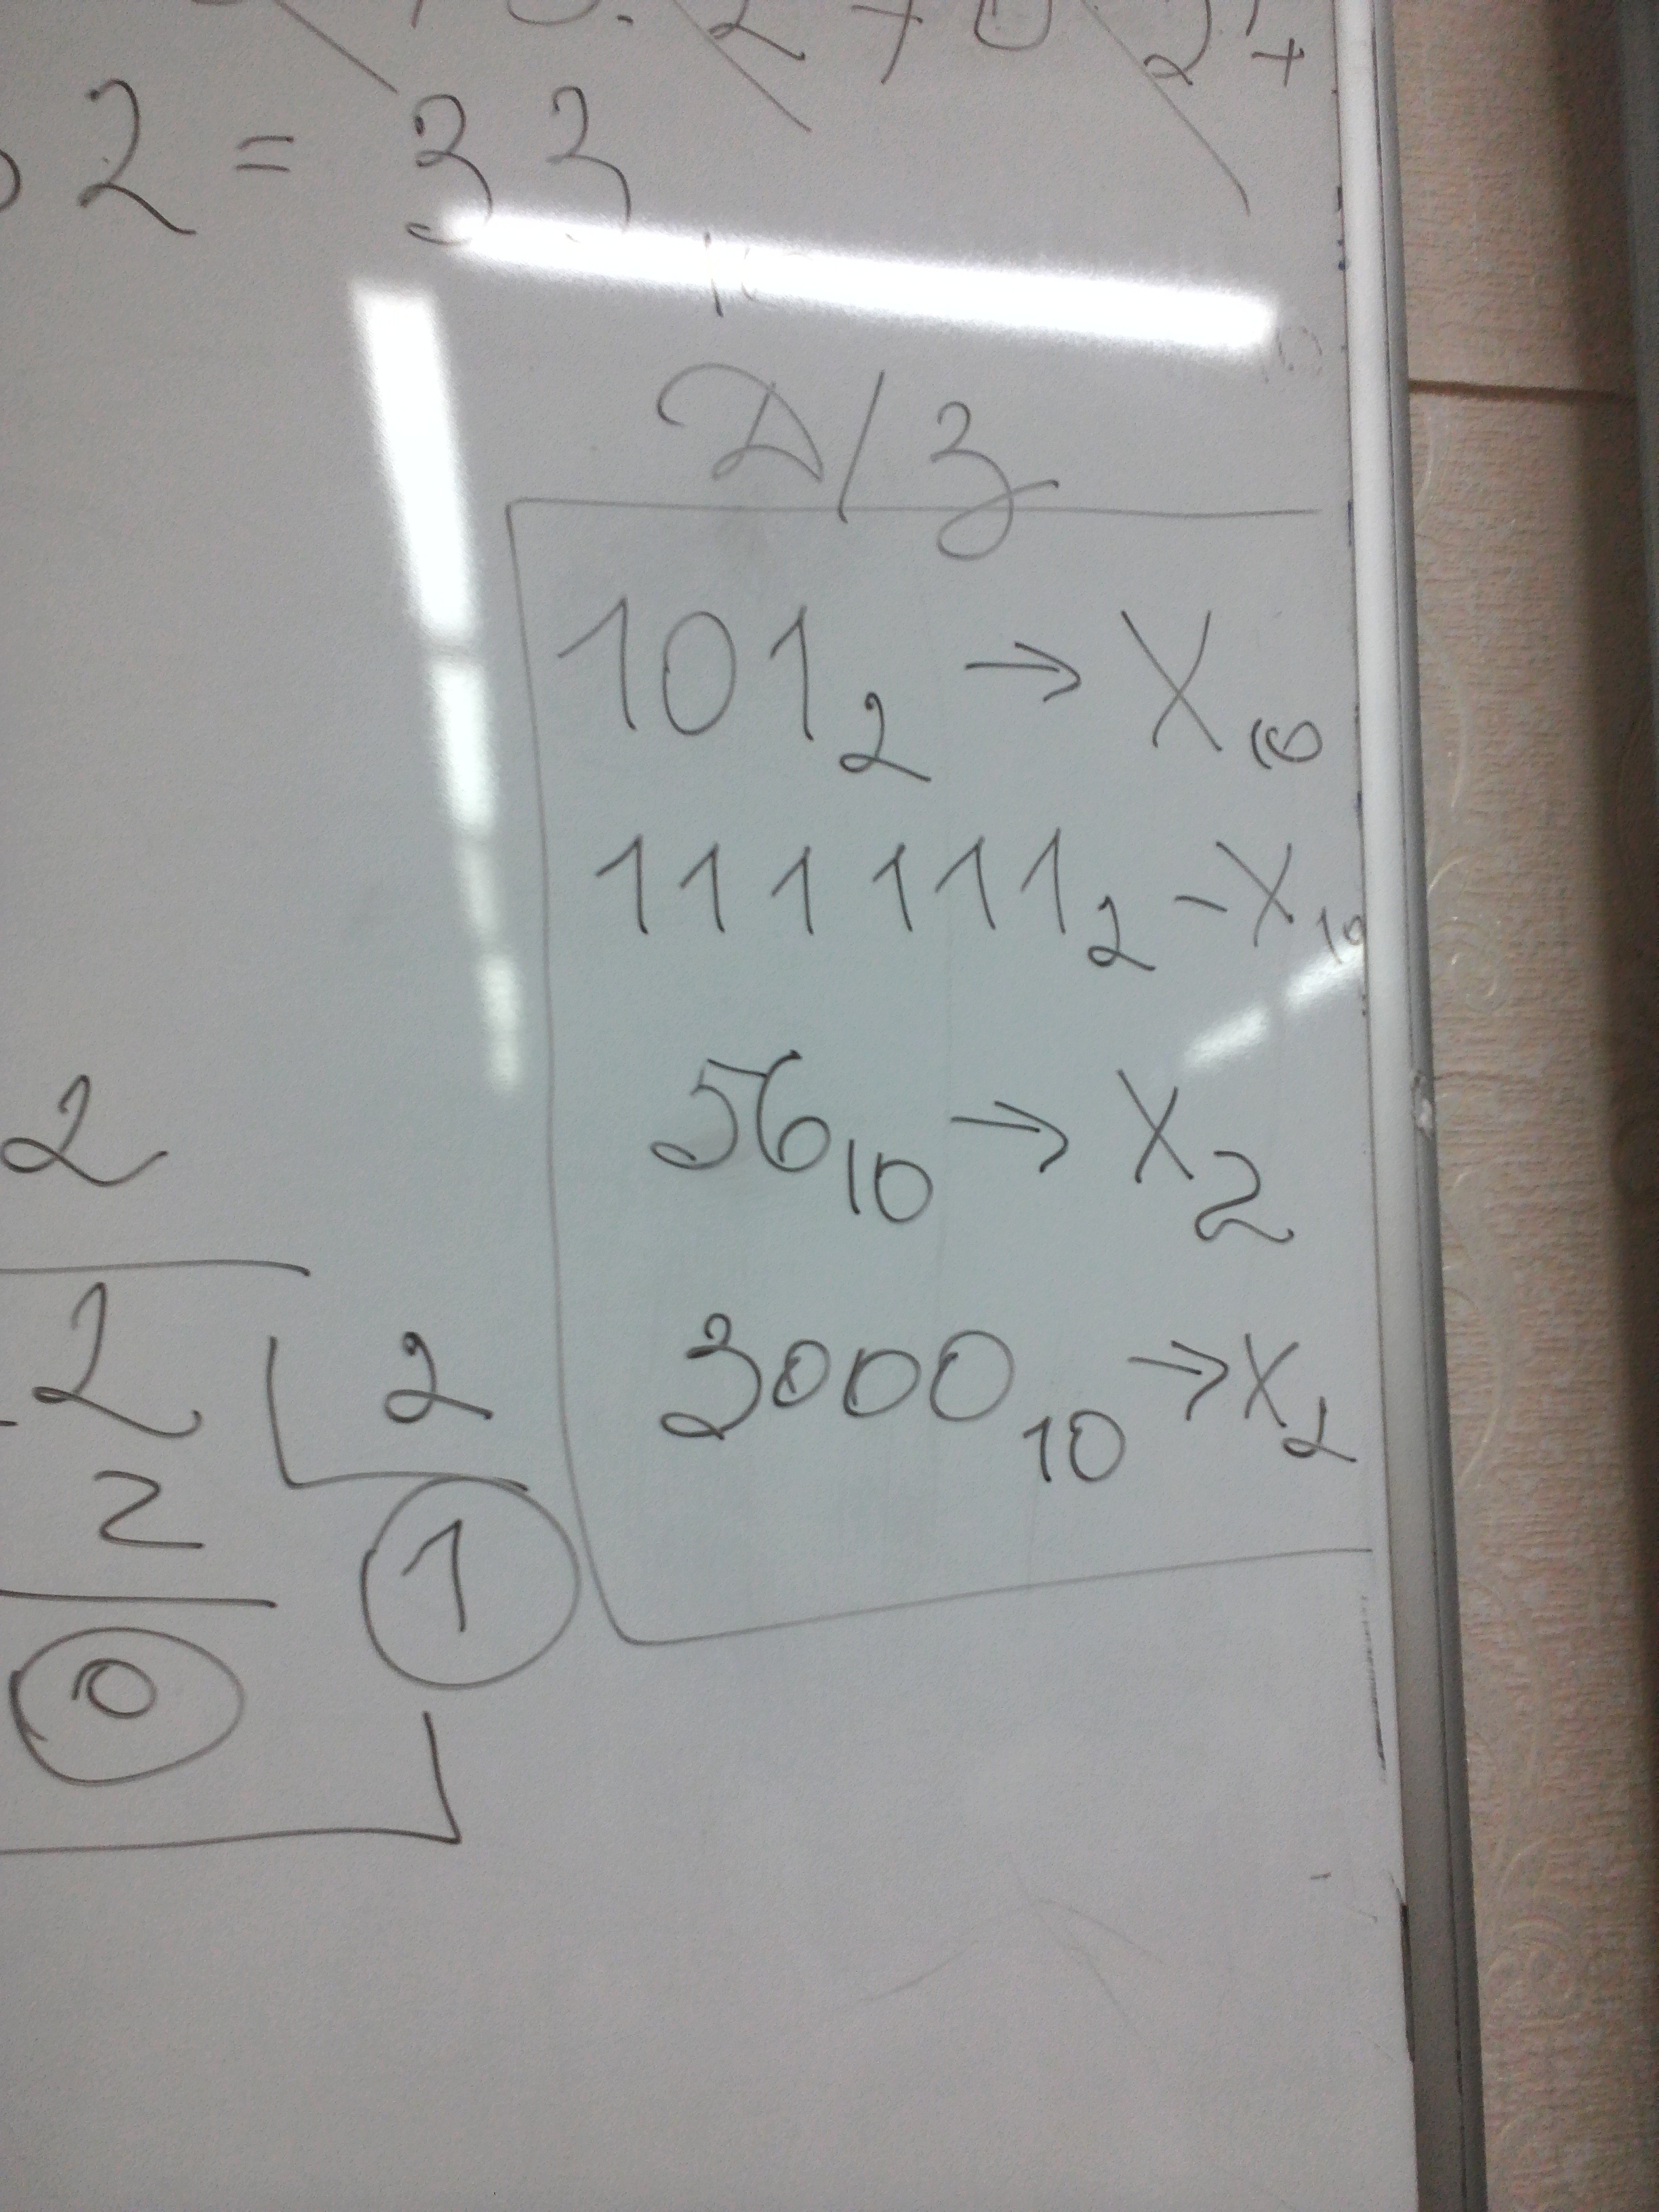 2 = 33
Д/З
101₂ → X₁₀
111111₂ – X₁₀
56₁₀ → X₂
3000₁₀ → X₂
2
2 2
2 1
0